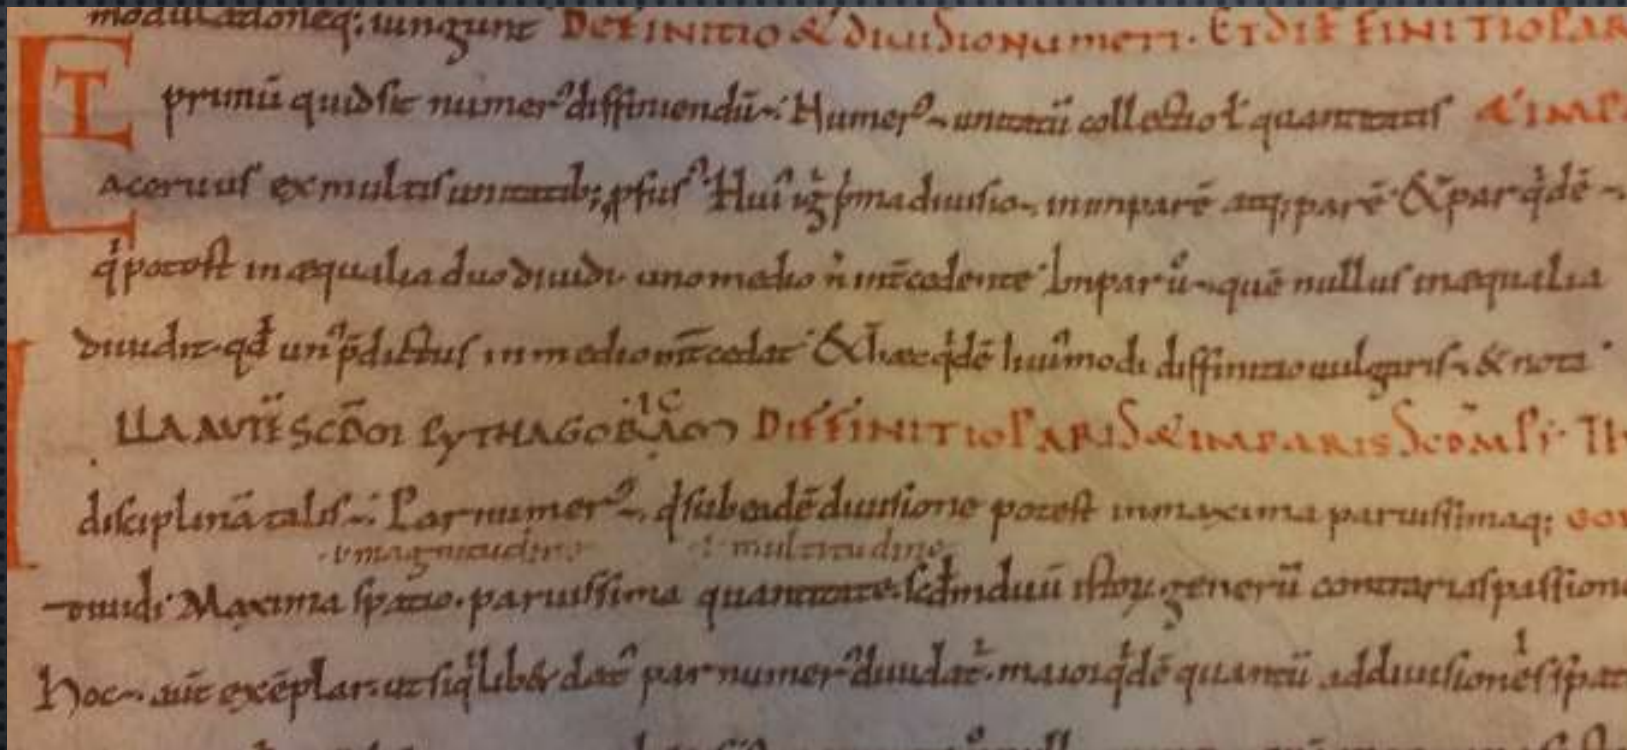 modulationeq; iungunt DEFINITIO & diuisio numeri. ET DIFFINITIO PAR
ET primū quid sit numer᾿ diffiniendū ÷ Numer᾿ ÷ unitatū collectio ł quantitatis & IMP
aceruus ex multis unitatib; ꝓfus᾿ Hui᾿ igͥ pͥma diuisio ÷ in inparē atq; parē & par qͥdē ÷
qͥ potest in æqualia duo diuidi uno medio n̄ int̄cedente Inpar u᾿ ÷ quē nullus in æqualia
diuidit qđ un᾿ p̄dictus in medio int̄cedat & hæc qͥdē hui᾿modi diffinitio uulgaris ÷ & nota
ILLA AUTĒ SCD̄M PYTHAGORICAM DIFFINITIO PARIS & IMPARIS SCD̄M PI
disciplinā talis ÷ Par numer᾿ ÷ qͥ sub eadē diuisione potest in maxima paruissimaq;
.i. magnitudine .i. multitudine
diuidi Maxima spatio. paruissima quantitate. scđm duū istoꝝ generū contrarias passion
Hoc ÷ aut̄ exēplar. ut siqͥlib& dat᾿ par numer᾿ diuidat᾿. maior qͥdē quantū ad diuisionē spat